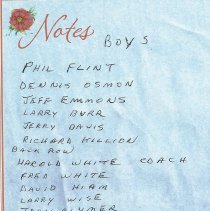 Notes
BOYS
PHIL FLINT
DENNIS OSMON
JEFF EMMONS
LARRY BURR
JERRY DAVIS
RICHARD KILLION
BACK ROW
HAROLD WHITE COACH
FRED WHITE
DAVID HIAM
LARRY WISE